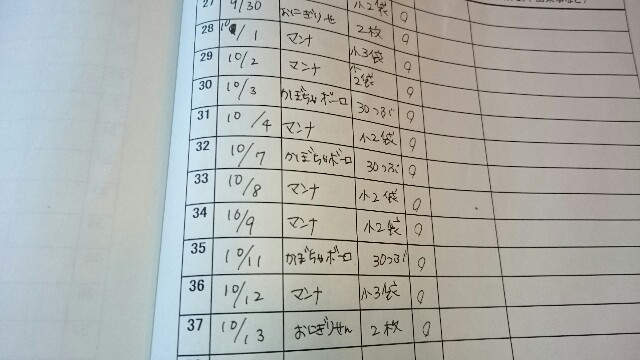 27 9/30 おにぎりせ 小2袋 0
28 10/1 マンナ 2枚 0
29 10/2 マンナ 小3袋 0
30 10/3 かぼちゃボーロ 小2袋 0
31 10/4 マンナ 30つぶ 0
32 10/7 かぼちゃボーロ 小2袋 0
33 10/8 マンナ 30つぶ 0
34 10/9 マンナ 小2袋 0
35 10/11 かぼちゃボーロ 小2袋 0
36 10/12 マンナ 30つぶ 0
37 10/13 おにぎりせん 小3袋 0
2枚 0